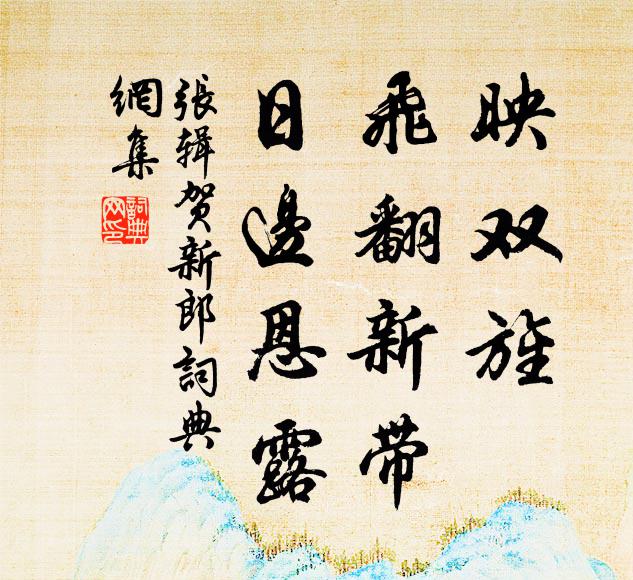 映双旌
飛翻新带
日邊恩露
張辑贺新郎詞典
網集
詞典
网印